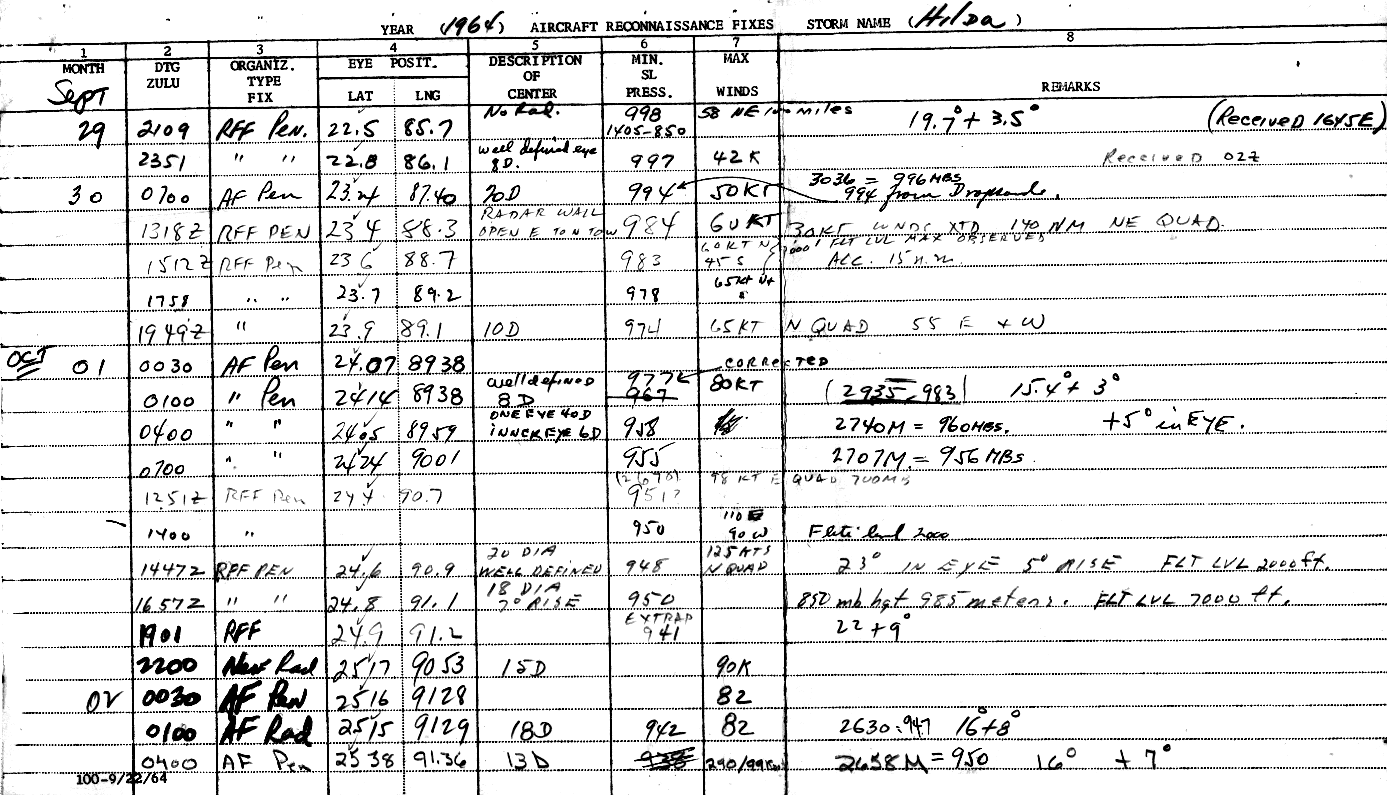 YEAR (1964) AIRCRAFT RECONNAISSANCE FIXES STORM NAME (Hilda)
1 2 3 4 5 6 7 8
MONTH DTG ZULU ORGANIZ. TYPE FIX EYE POSIT. LAT LNG DESCRIPTION OF CENTER MIN. SL PRESS. MAX WINDS REMARKS
Sept
29 2109 RFF Pen. 22.5 85.7 No Rad. 998 1405-850 58 NE 100 miles 19.7° + 3.5° (Received 1645E)
2351 " " 22.8 86.1 well defined eye 8D. 997 42K Received 02Z
30 0700 AF Pen 23.24 87.40 20D 994 50KT 3036 = 996MBS 994 from Dropsonde.
1318Z RFF PEN 23.4 88.3 RADAR WALL OPEN E TO N TO W 984 60KT 30KT WNDS XTD 140 NM NE QUAD.
1512Z RFF Pen 23.6 88.7 983 60KT N 45 S FLT LVL MAX OBSERVED ACC. 15 n.m.
1758 " " 23.7 89.2 978 65Kt
1949Z " 23.9 89.1 10D 974 65KT N QUAD 55 E + W
OCT 01 0030 AF Pen 24.07 8938
0100 " Pen 2414 8938 well defined 8D 977 967 CORRECTED 80KT (2935 983) 15.4° + 3°
0400 " " 2405 8959 ONE EYE 40D INNER EYE 6D 958 2740M = 960MBS. +5° in EYE.
0700 " " 2424 9001 955 2707M = 956MBS
1251Z RFF Pen 24.4 90.7 (2690) 951? 98 KT E QUAD 700MB
1400 " 950 110 E 90 W Flite level 2000
1447Z RFF PEN 24.6 90.9 20 DIA WELL DEFINED 948 125 KTS N QUAD 23° IN EYE 5° RISE FLT LVL 2000ft.
1657Z " " 24.8 91.1 18 DIA 7° RISE 950 850 mb hgt 985 meters. FLT LVL 7000 ft.
1901 RFF 24.9 91.2 EXTRAP 941 22 + 9°
2200 Navy Rad 2517 9053 15D 90K
02 0030 AF Pen 2516 9128 82
0100 AF Rad 2515 9129 18D 942 82 2630:947 16° + 8°
0400 AF Pen 2538 91.36 13D 2658M = 950 16° + 7°
100-9/22/64